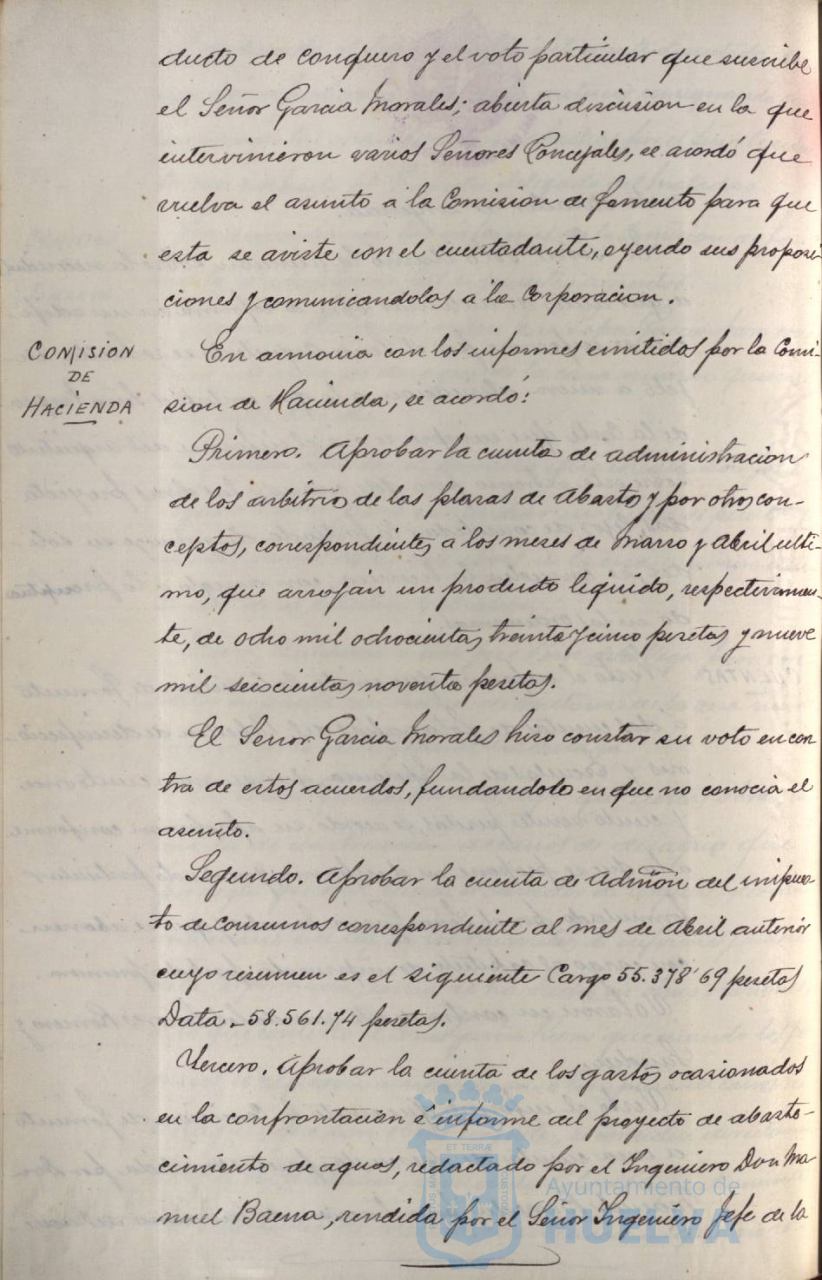 ducto de Conquero y el voto particular que suscribe
el Señor Garcia Morales; abierta discusion en la que
intervinieron varios Señores Concejales, se acordó que
vuelva el asunto á la Comision de fomento para que
esta se aviste con el cuentadante, oyendo sus proposi-
ciones y comunicandolas a la Corporacion.
COMISION
DE
HACIENDA
En armonia con los informes emitidos por la Comi-
sion de Hacienda, se acordó:
Primero. Aprobar la cuenta de administracion
de los arbitrios de las plazas de Abastos y por otros con-
ceptos, correspondientes á los meses de Marzo y Abril ulti-
mo, que arrojan un producto liquido, respectivamen-
te, de ocho mil ochocientas treinta y cinco pesetas y nueve
mil seiscientas noventa pesetas.
El Señor Garcia Morales hizo constar su voto en con
tra de estos acuerdos, fundandolo en que no conocia el
asunto.
Segundo. Aprobar la cuenta de Admõn del impues
to de Consumos correspondiente al mes de Abril anterior
cuyo resumen es el siguiente Cargo 55.378'69 pesetas
Data. 58.561.74 pesetas.
Tercero. Aprobar la cuenta de los gastos ocasionados
en la confrontacion é informe del proyecto de abaste-
cimiento de aguas, redactado por el Ingeniero Don Ma
nuel Baena, rendida por el Señor Ingeniero Jefe de la
ET TERRÆ
Ayuntamiento de
HUELVA